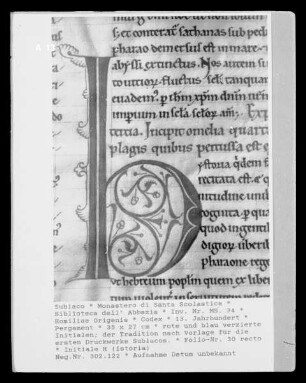 & conterat sathanas sub ped
pharao demersus est in mare
abyssi extinctus. Nos autem
fluctus seli tanquam
euadem. p
imperium in scła scłor am. Exp
tercia. Incipit omelia quarta
plagis quibus percussa est e
ystoria qdem f
recitata est
titudine
cognita. p
quod ingenti
digior. uberi
pharaone rege
ut hebreum poplm quem ex
Subiaco * Monastero di Santa Scolastica *
Biblioteca dell' Abbazia * Inv. Nr. MS. 34 *
Homilias Origenis * Codex * 13. Jahrhundert *
Pergament * 35 x 27 cm * rote und blau verzierte
Initialen; der Tradition nach Vorlage für die
ersten Druckwerke Subiacos. * Folio-Nr. 30 recto
* Initiale H (istoria)
Neg.Nr. 303.122 * Aufnahme Datum unbekannt